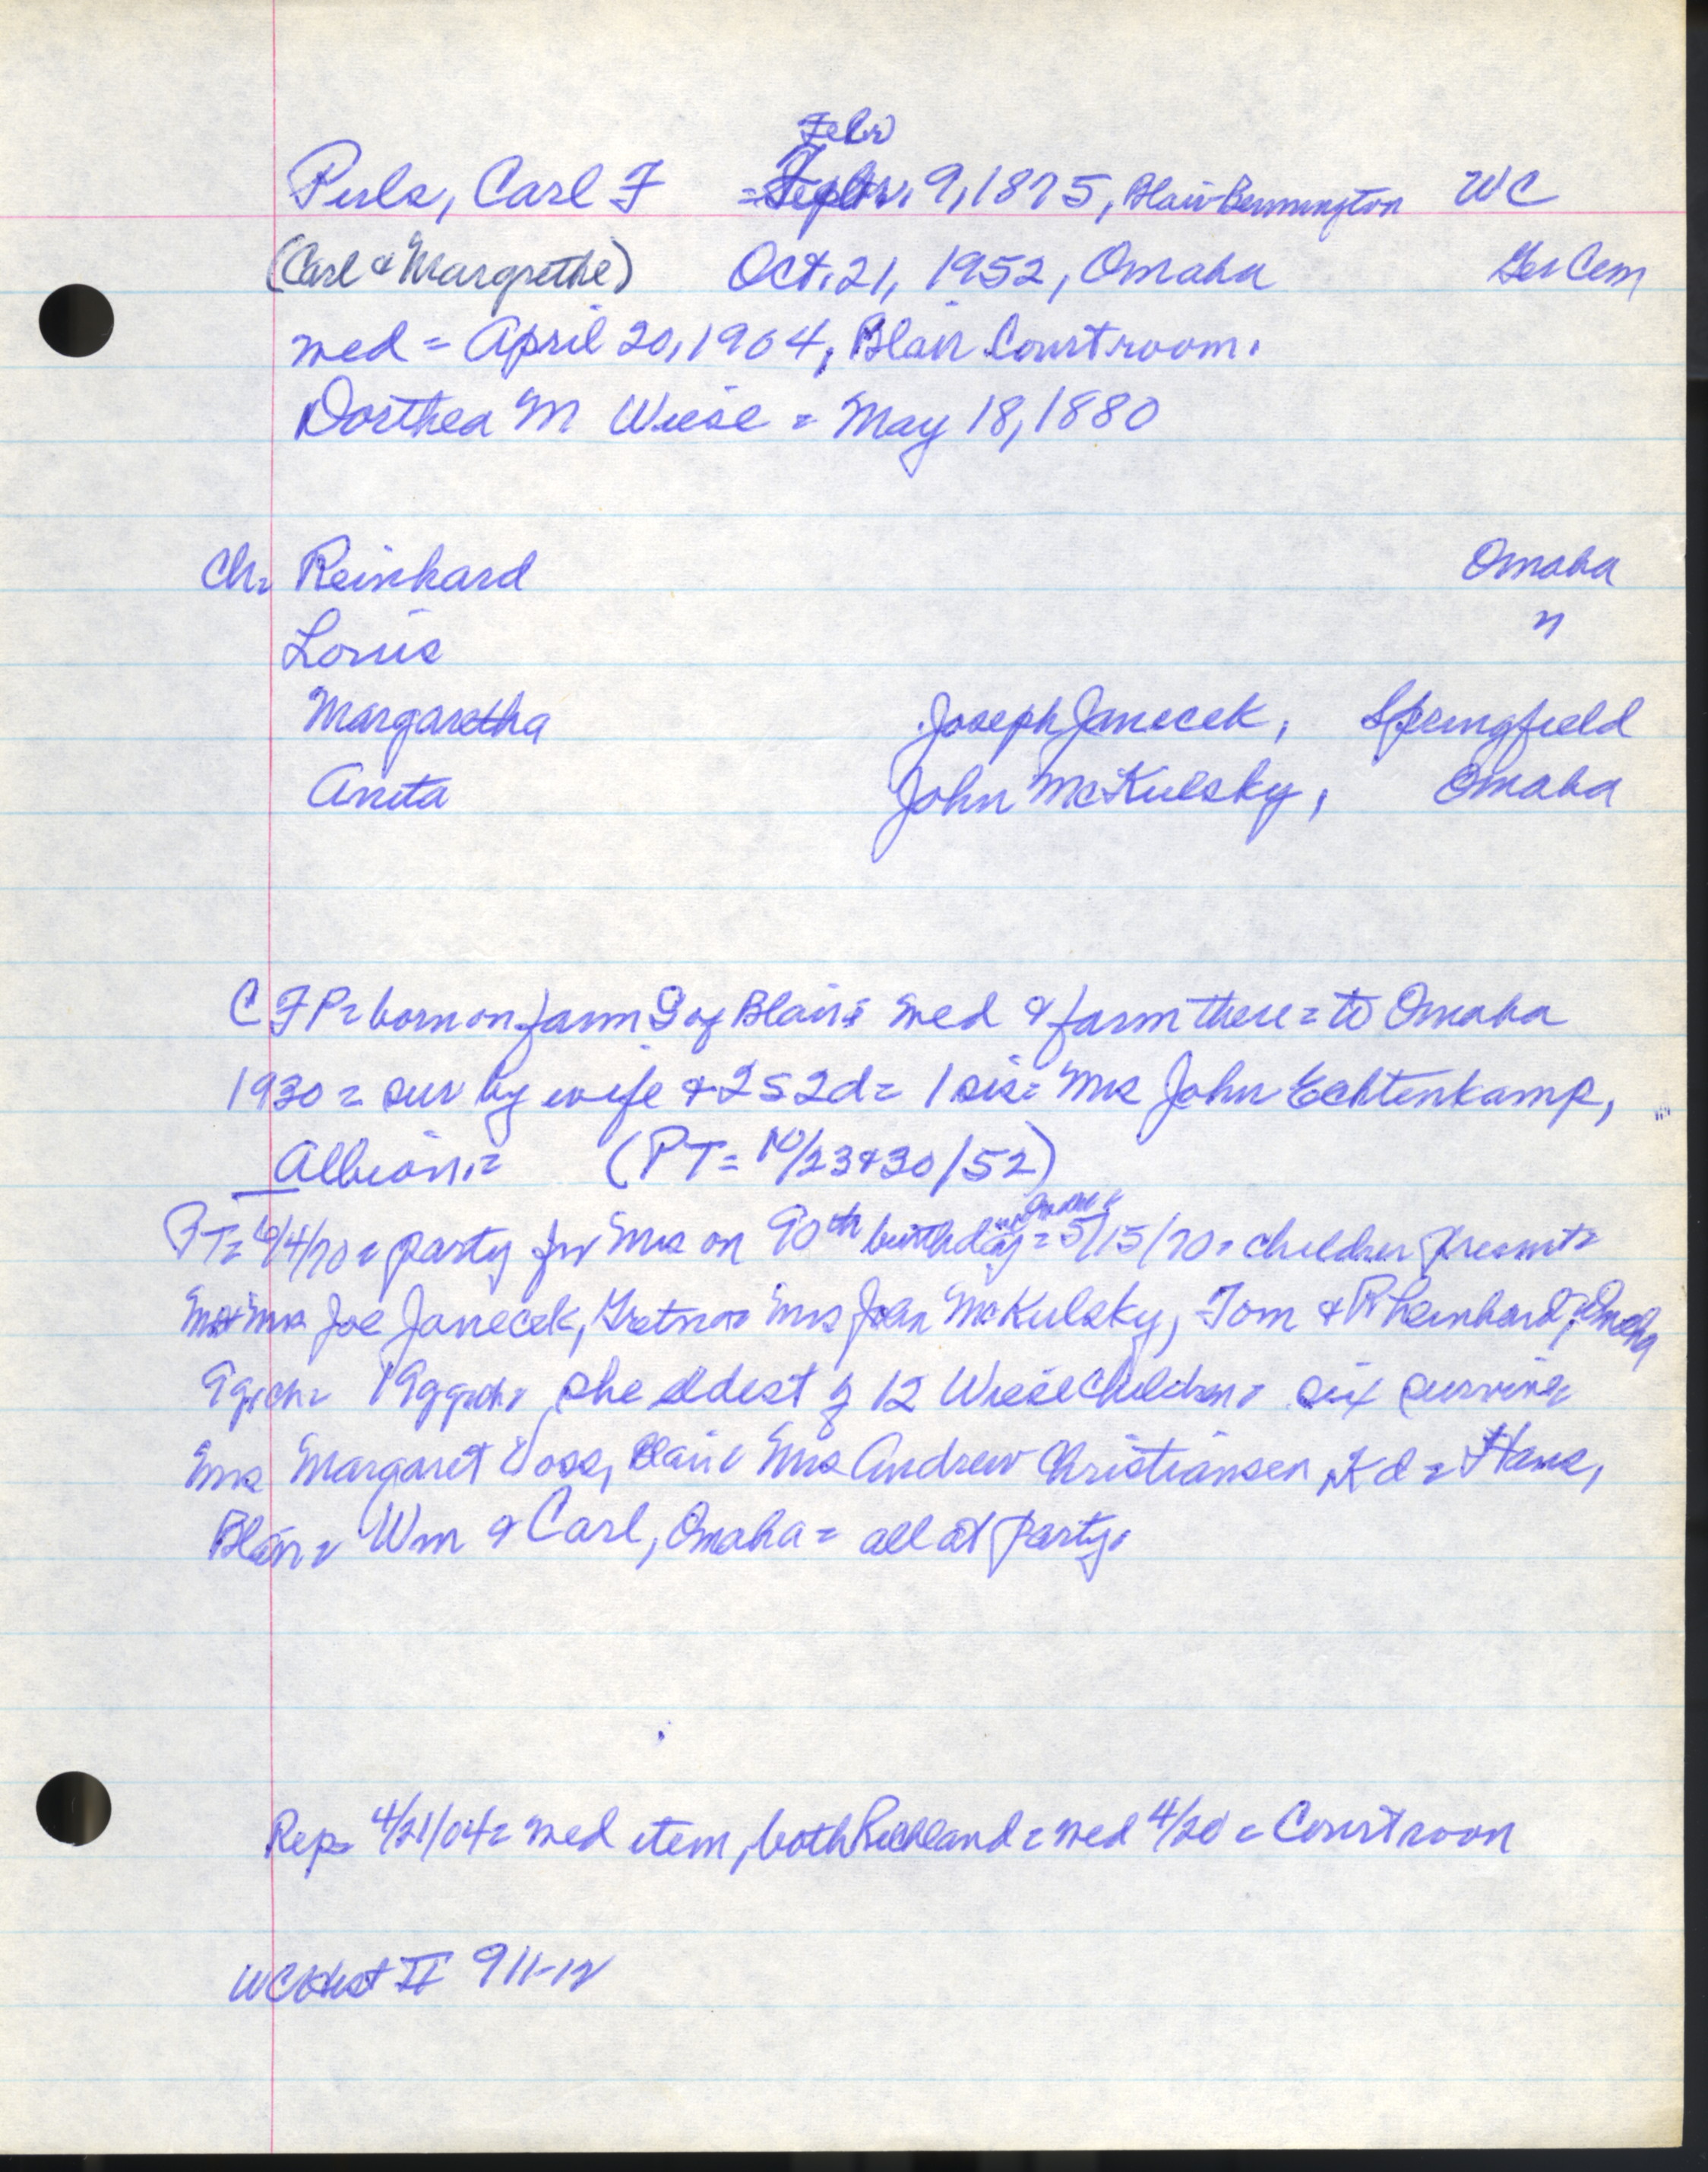 Febr
Puls, Carl F = Septbr. 9, 1875, Blair-Bennington WC
(Carl & Margrethe) Oct. 21, 1952, Omaha Ger Cem
wed = April 20, 1904, Blair Courtroom.
Dorthea M Wiese = May 18, 1880
Ch= Reinhard Omaha
Louis "
Margaretha Joseph Janecek, Springfield
Anita John McKulsky, Omaha
C F P = born on farm S of Blair = wed & farm there = to Omaha
1930 = sur by wife & 2 S 2 d = 1 sis = Mrs John Echtenkamp,
Albion. = (PT = 10/23 & 30/52)
PT = 6/4/70 = party for Mrs on 90th birthday = 5/15/70 = children present =
Mr & Mrs Joe Janecek, Gretna = Mrs John McKulsky, Tom & Rheinhard, Omaha
9 g.ch = 19 ggch = she eldest of 12 Wiese children = six survive
Mrs Margaret Voss, Blair = Mrs Andrew Christiansen, Kd = Hans,
Blair = Wm & Carl, Omaha = all at party.
Rep = 4/21/04 = wed item, both Richland = wed 4/20 = Courtroom
WC Hist II 911-12